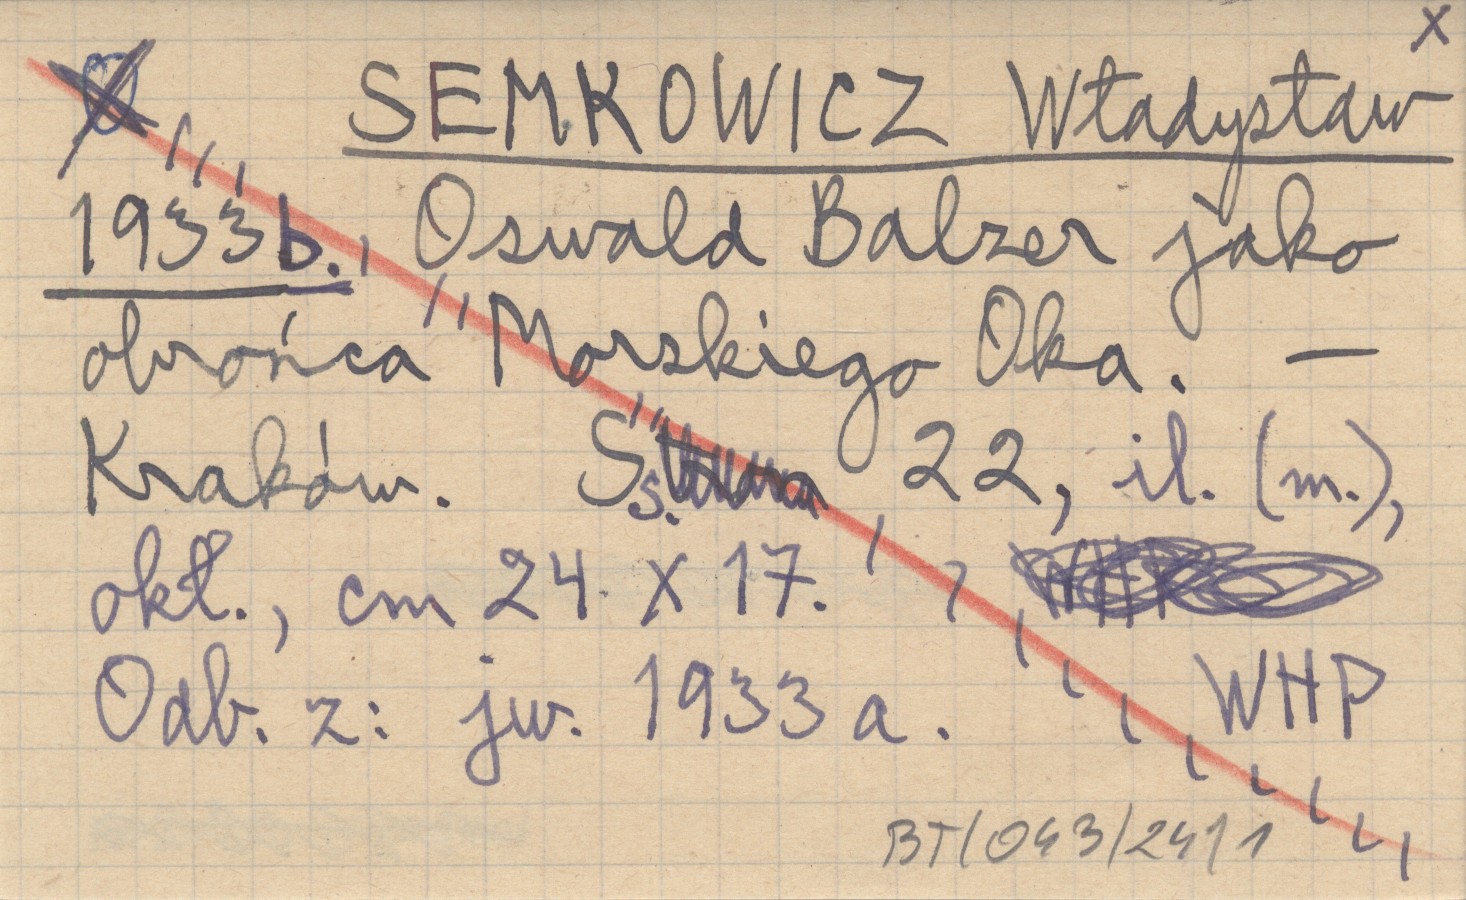 x
SEMKOWICZ Władysław
1933b. Oswald Balzer jako
obrońca Morskiego Oka. —
Kraków. S. 22, il. (m.),
okł., cm 24 x 17.
Odb. z: jw. 1933a. WHP
BT/043/24/1